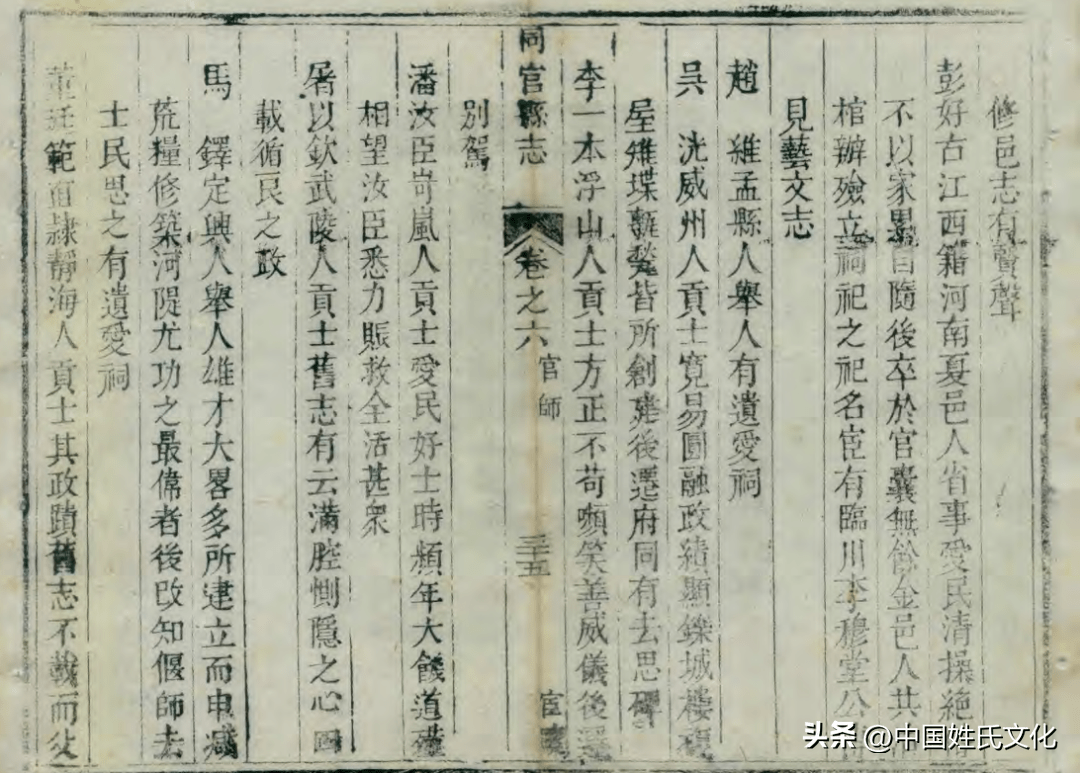 修邑志有賢聲
彭好古江西籍河南夏邑人省事愛民清操絶
不以家累自隨後卒於官囊無餘金邑人共
棺辦殮立祠祀之祀名宦有臨川李穆堂公
見藝文志
趙　維孟縣人舉人有遺愛祠
吳　洗威州人貢士寬易圓融政績顯鑠城樓
屋雉堞甎甃皆所創建後遷府同有去思碑
李一本浮山人貢士方正不苟嚬笑善威儀後遷
同官縣志
卷之六
官師
三十五
別駕
潘汝臣岢嵐人貢士愛民好士時頻年大饑道殣
相望汝臣悉力賑救全活甚衆
屠以欽武陵人貢士舊志有云滿腔惻隱之心
載循良之政
馬　鐸定興人舉人雄才大畧多所建立而申減
荒糧修築河隄尤功之最偉者後改知偃師去
士民思之有遺愛祠
董廷範直隷靜海人貢士其政蹟舊志不載而父
头条 @中国姓氏文化